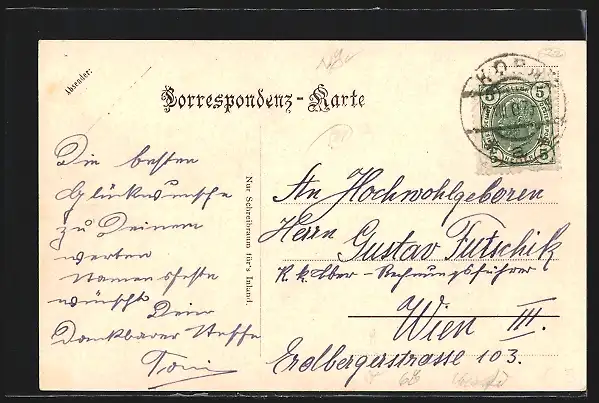 Absender:
Correspondenz-Karte
Die besten
Glückwunsche
zu Deinem
werten
Namensfeste
wünscht
Dein
Dankbarer Neffe
Toni
Nur Schreibraum für's Inland.
5 5
5 5
An Hochwohlgeboren
Herrn Gustav Futschik
K. k. Ober-Rechnungsführer
Wien III.
Erdbergerstrasse 103.